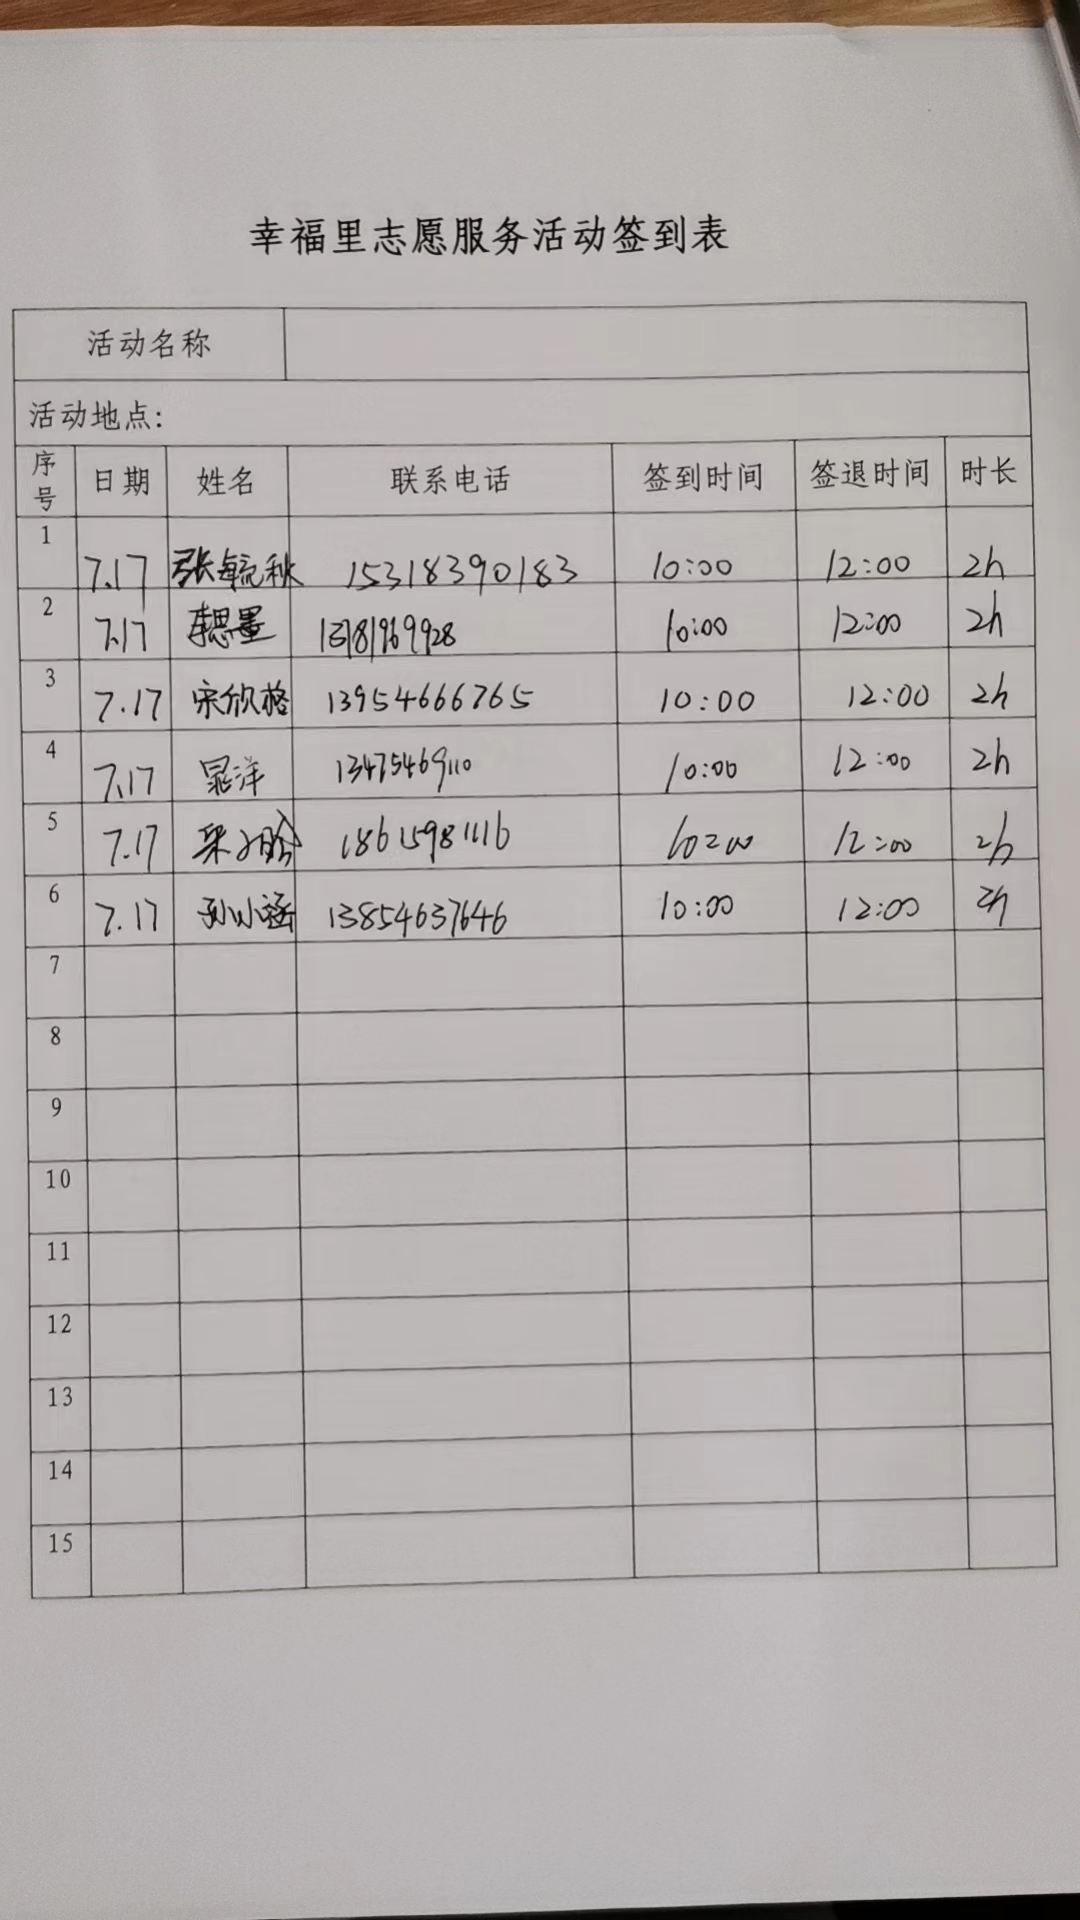 幸福里志愿服务活动签到表
活动名称
活动地点:
序号 日期 姓名 联系电话 签到时间 签退时间 时长
1 7.17 张毓秋 15318390183 10:00 12:00 2h
2 7.17 李思墨 13181969928 10:00 12:00 2h
3 7.17 宋欣格 13954666765 10:00 12:00 2h
4 7.17 晁洋 13475469110 10:00 12:00 2h
5 7.17 18615981116 10:00 12:00 2h
6 7.17 孙小涵 13854637646 10:00 12:00 2h
7
8
9
10
11
12
13
14
15